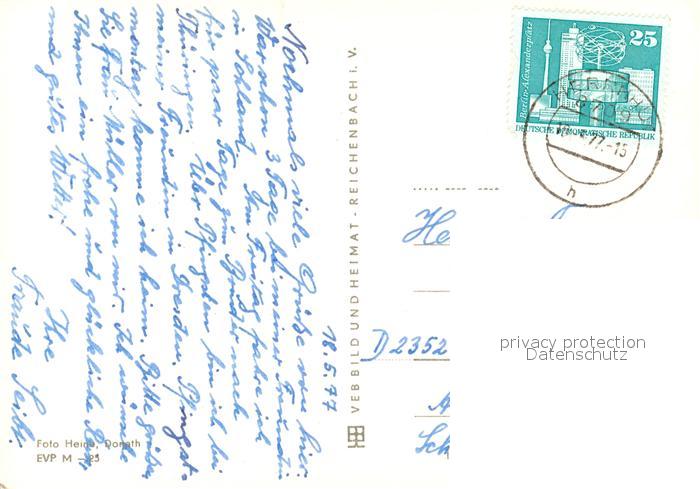 18.5.77
Nochmals viele Grüße von hier.
War schon 3 Tage bei meiner Freundin
in Sohland. Am Freitag fahre ich
für paar Tage zum Bruder nach
Thüringen. Über Pfingsten bin ich bei
meiner Freundin in Dresden. Pfingst-
montag komme ich heim. Bitte grüßen
Sie Frau Müller von mir. Ich wünsche
Ihnen ein frohe und glückliche
und gutes Wetter!
Ihre
Traude
Foto Heinz, Donath
EVP M –,25
VEB BILD UND HEIMAT · REICHENBACH i. V.
25
Berlin-Alexanderplatz
DEUTSCHE DEMOKRATISCHE REPUBLIK
77.-15
h
He
D 2352
Sch
privacy protection
Datenschutz